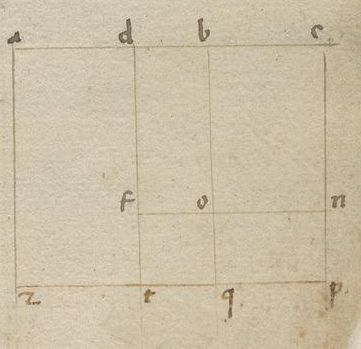 a d b c
f o n
z t q p